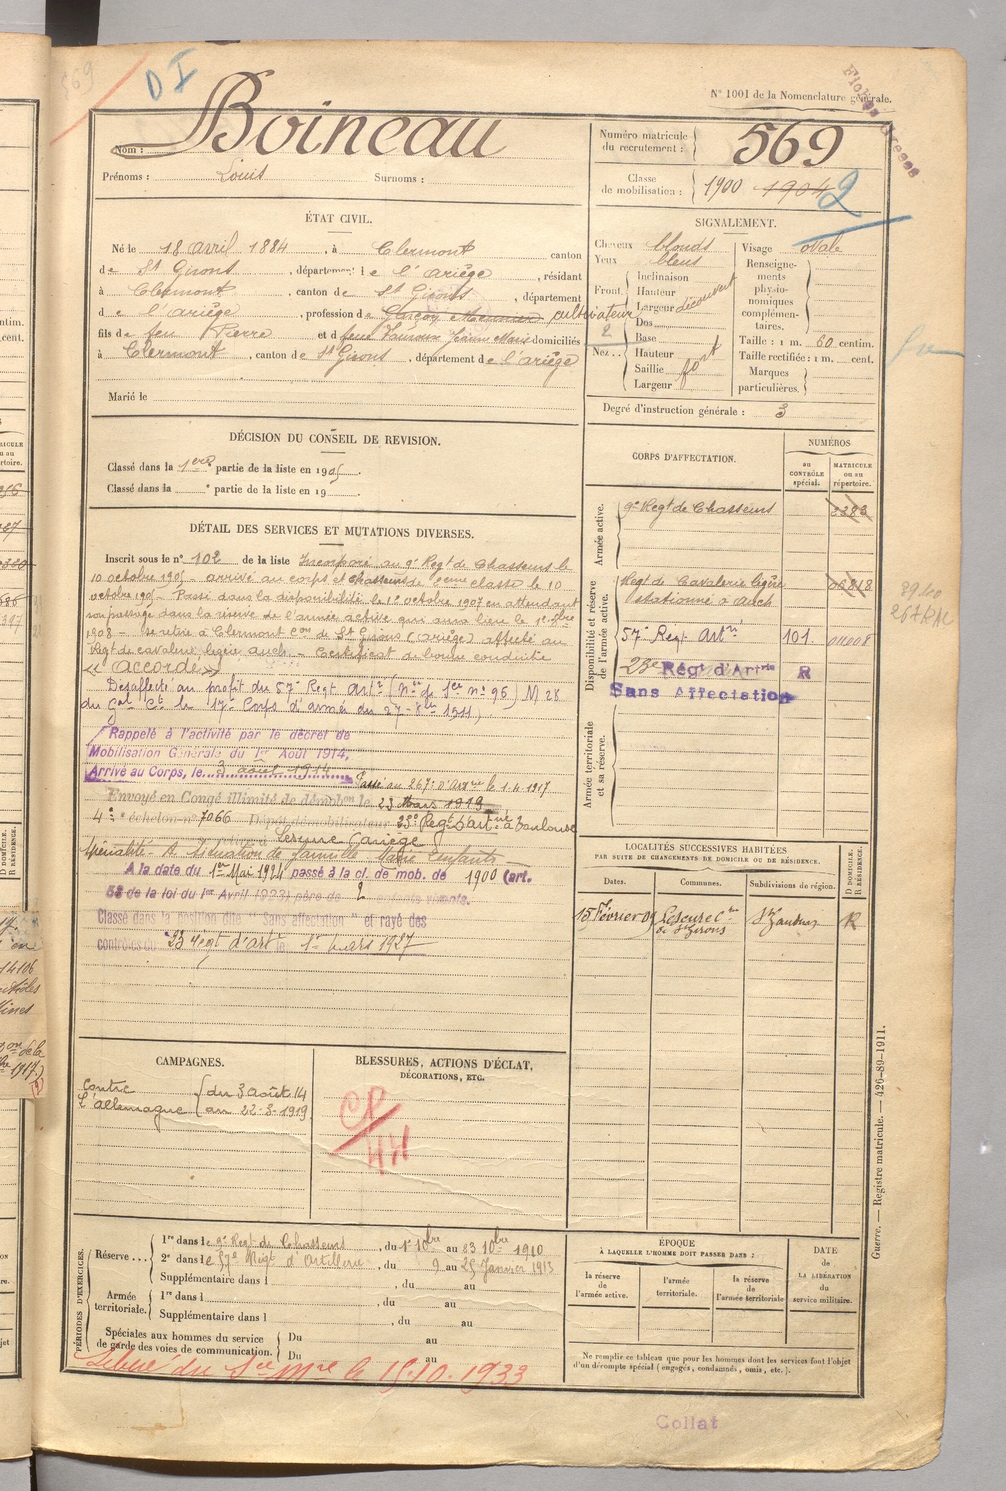 569
D I
N° 1001 de la Nomenclature générale.
Nom : Boineau
Prénoms : Louis Surnoms :
Numéro matricule du recrutement : 569
Classe de mobilisation : 1900 1904 2
ÉTAT CIVIL.
Né le 18 avril 1884, à Clermont canton
de St Girons, département de l'Ariège, résidant
à Clermont, canton de St Girons, département
d e l'ariège, profession de Garçon Meunier cultivateur
fils de feu Pierre et d feue Jeanne Marie domiciliés
à Clermont, canton de St Girons, département de l'ariège
Marié le
SIGNALEMENT.
Cheveux blonds
Yeux bleus
Front Inclinaison
Hauteur
Largeur découvert
Nez Dos
Base
Hauteur
Saillie fort
Largeur
2
Visage ovale
Renseignements physionomiques complémentaires.
Taille : 1 m. 60 centim.
Taille rectifiée : 1 m. cent.
Marques particulières.
Degré d'instruction générale : 3
DÉCISION DU CONSEIL DE REVISION.
Classé dans la 1ère partie de la liste en 1905.
Classé dans la ° partie de la liste en 19 .
DÉTAIL DES SERVICES ET MUTATIONS DIVERSES.
Inscrit sous le n° 102 de la liste Incorporé au 9e Regt de Chasseurs le
10 octobre 1905 – arrivé au corps et chasseur de 2ème classe le 10
octobre 1905 – Passé dans la disponibilité le 1er octobre 1907 en attendant
son passage dans la réserve de l'armée active qui aura lieu le 1er 8bre
1908 – se retire à Clermont con de St Girons (Ariège) affecté au
Regt de cavalerie légère Auch – Certificat de bonne conduite
« accordé »
Désaffecté au profit du 57e Regt Artie (Nte de Sce n° 96) M 28
du Gal Ct le 17e Corps d'armée du 27-8bre 1911.
Rappelé à l'activité par le décret de
Mobilisation Générale du 1er Août 1914,
Arrivé au Corps, le 3 août 1914 Passé au 267e d'Artrie le 1.4.1917
Envoyé en Congé illimité de démobon le 23 Mars 1919
4e échelon n° 7066 Dépôt démobilisateur 23e Regt d'Artrie à Toulouse
Lescure (Ariège
A la date du 1er Mai 1924 passé à la cl. de mob. de 1900 (art.
58 de la loi du 1er Avril 1923) père de 2 enfants vivants.
Classé dans la position dite " Sans affectation " et rayé des
contrôles du 23 regt d'art le 1er Mars 1927
CORPS D'AFFECTATION.
NUMÉROS
au CONTRÔLE spécial.
MATRICULE ou au répertoire.
Armée active.
9e Regt de Chasseurs 3283
Disponibilité et réserve de l'armée active.
Regt de Cavalerie légère
stationné à Auch
57e Regt Artie 101. 01008
23e Régt d'Artrie R
Sans Affectation
Armée territoriale et sa réserve.
LOCALITÉS SUCCESSIVES HABITÉES
PAR SUITE DE CHANGEMENTS DE DOMICILE OU DE RÉSIDENCE.
Dates. Communes. Subdivisions de région. D DOMICILE. R RÉSIDENCE.
15 Février 09 Lescure Cton de St Girons St Gaudens R
CAMPAGNES.
Contre l'allemagne { du 3 août 14
au 22-3-1919
BLESSURES, ACTIONS D'ÉCLAT,
DÉCORATIONS, ETC.
PÉRIODES D'EXERCICES.
Réserve
1re dans le 9e Regt de Chasseurs, du 1er 10bre au 23 10bre 1910
2e dans le 57e Regt d'Artillerie, du 9 au 25 Janvier 1913
Supplémentaire dans l , du au
Armée territoriale.
1re dans l , du au
Supplémentaire dans l , du au
Spéciales aux hommes du service
de garde des voies de communication.
Du au
Du au
Libéré du Sce Mre le 15.10.1933
ÉPOQUE
À LAQUELLE L'HOMME DOIT PASSER DANS :
la réserve de l'armée active.
l'armée territoriale.
la réserve de l'armée territoriale
DATE de LA LIBÉRATION du service militaire.
Ne remplir ce tableau que pour les hommes dont les services font l'objet
d'un décompte spécial (engagés, condamnés, omis, etc.).
Guerre. — Registre matricule. — 426-89-1911.
Collat